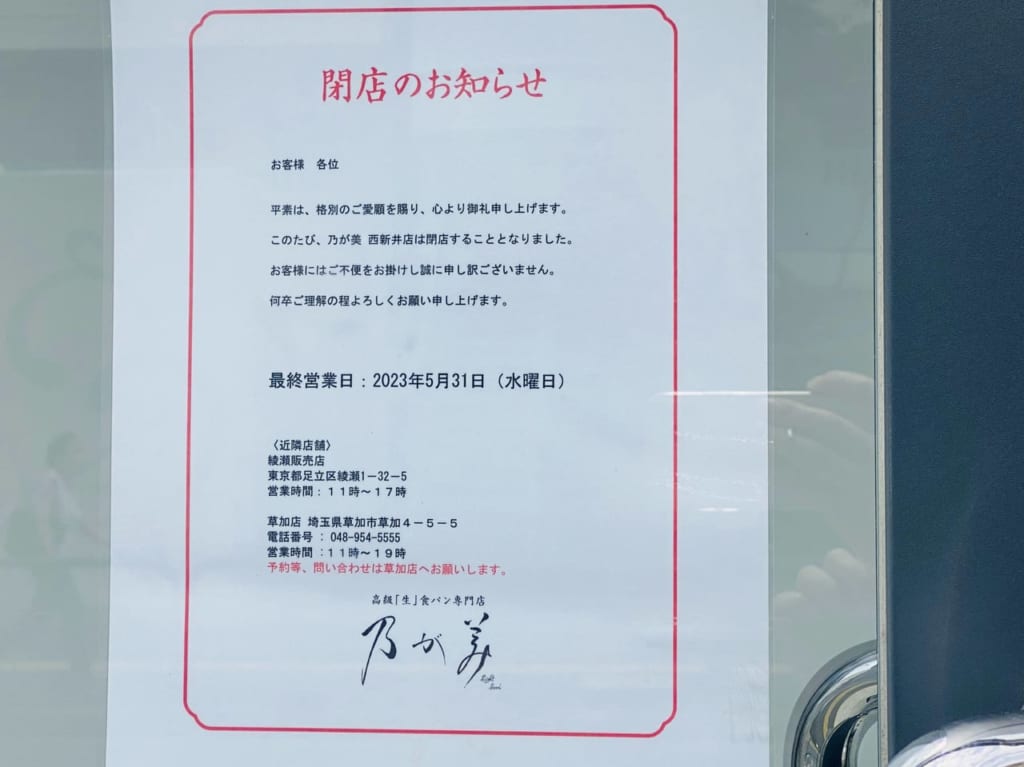 閉店のお知らせ
お客様　各位
平素は、格別のご愛顧を賜り、心より御礼申し上げます。
このたび、乃が美 西新井店は閉店することとなりました。
お客様にはご不便をお掛けし誠に申し訳ございません。
何卒ご理解の程よろしくお願い申し上げます。
最終営業日：2023年5月31日（水曜日）
〈近隣店舗〉
綾瀬販売店
東京都足立区綾瀬1－32－5
営業時間：１１時～１７時
草加店 埼玉県草加市草加４－５－５
電話番号 ： 048-954-5555
営業時間 ：１１時～１９時
予約等、問い合わせは草加店へお願いします。
高級「生」食パン専門店
乃が美